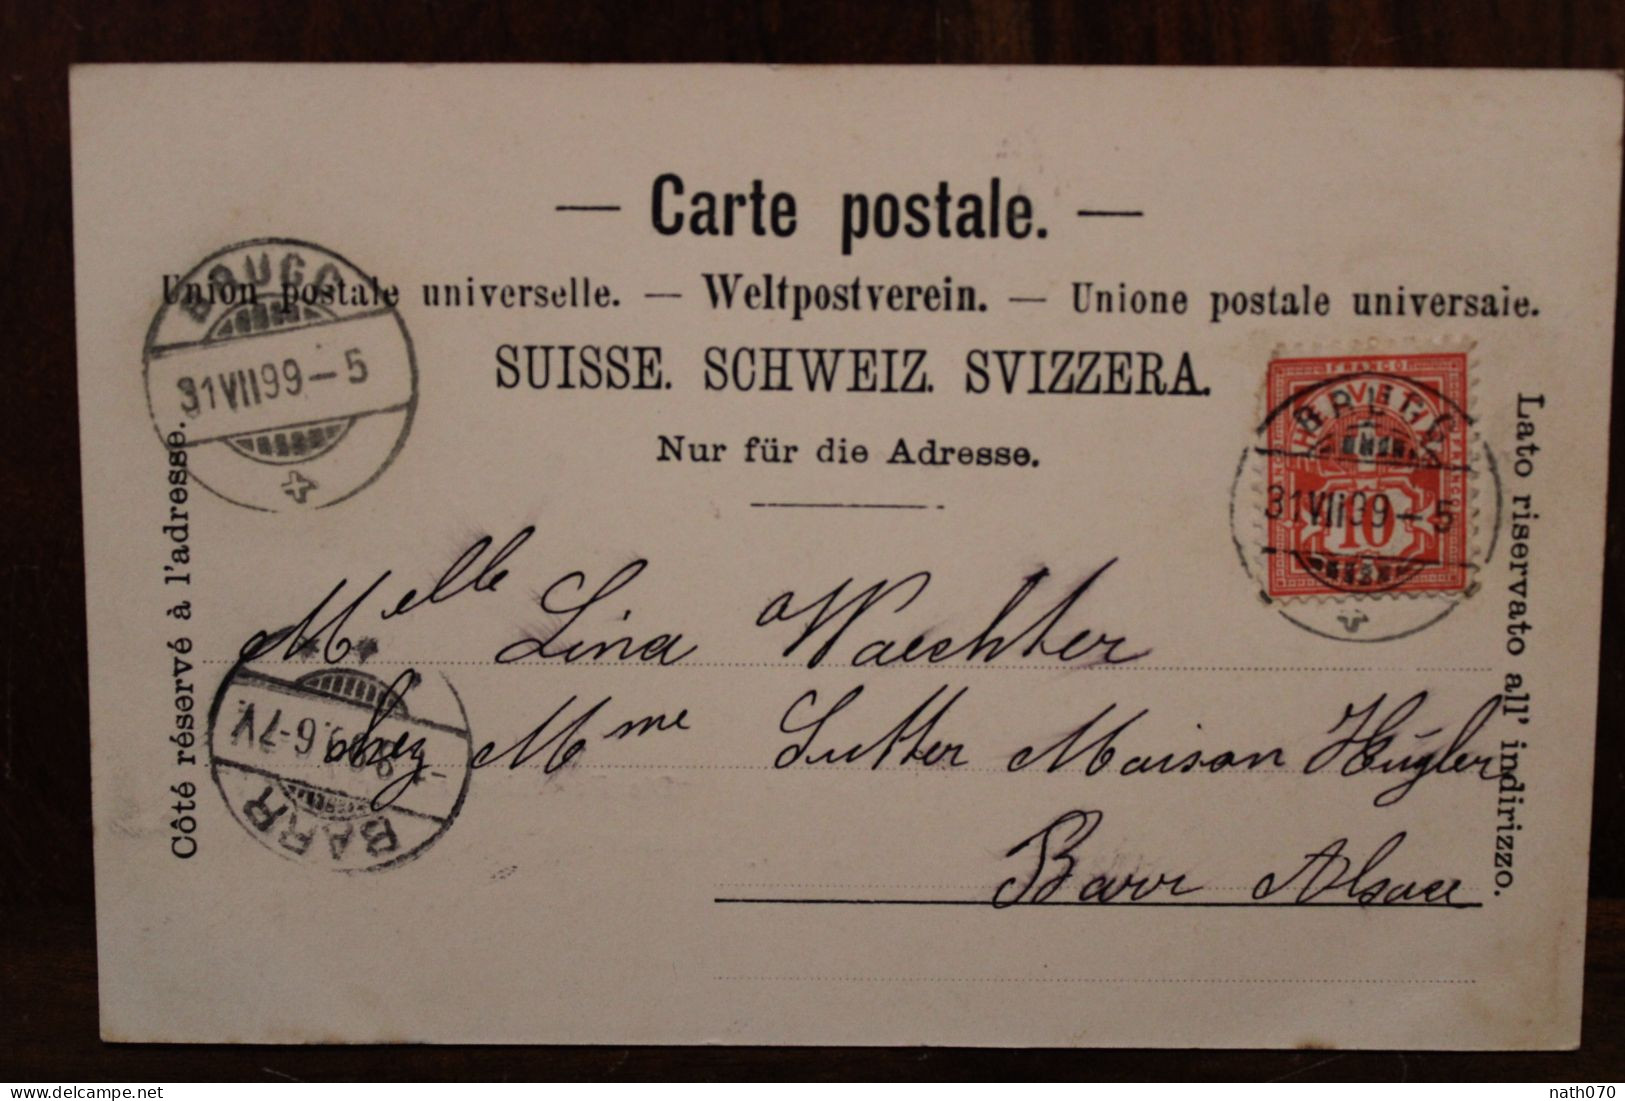 — Carte postale. —
Union postale universelle. — Weltpostverein. — Unione postale universale.
SUISSE. SCHWEIZ. SVIZZERA.
Nur für die Adresse.
Côté réservé à l'adresse.
Lato riservato all' indirizzo.
BRUGG
31 VII 99 – 5
FRANCO
HELVETIA
10
BRUGG
31 VII 99 – 5
Melle Lina Waechter
chez Mme Sutter Maison Hügler
Barr Alsace
BARR
6-7V
nath070